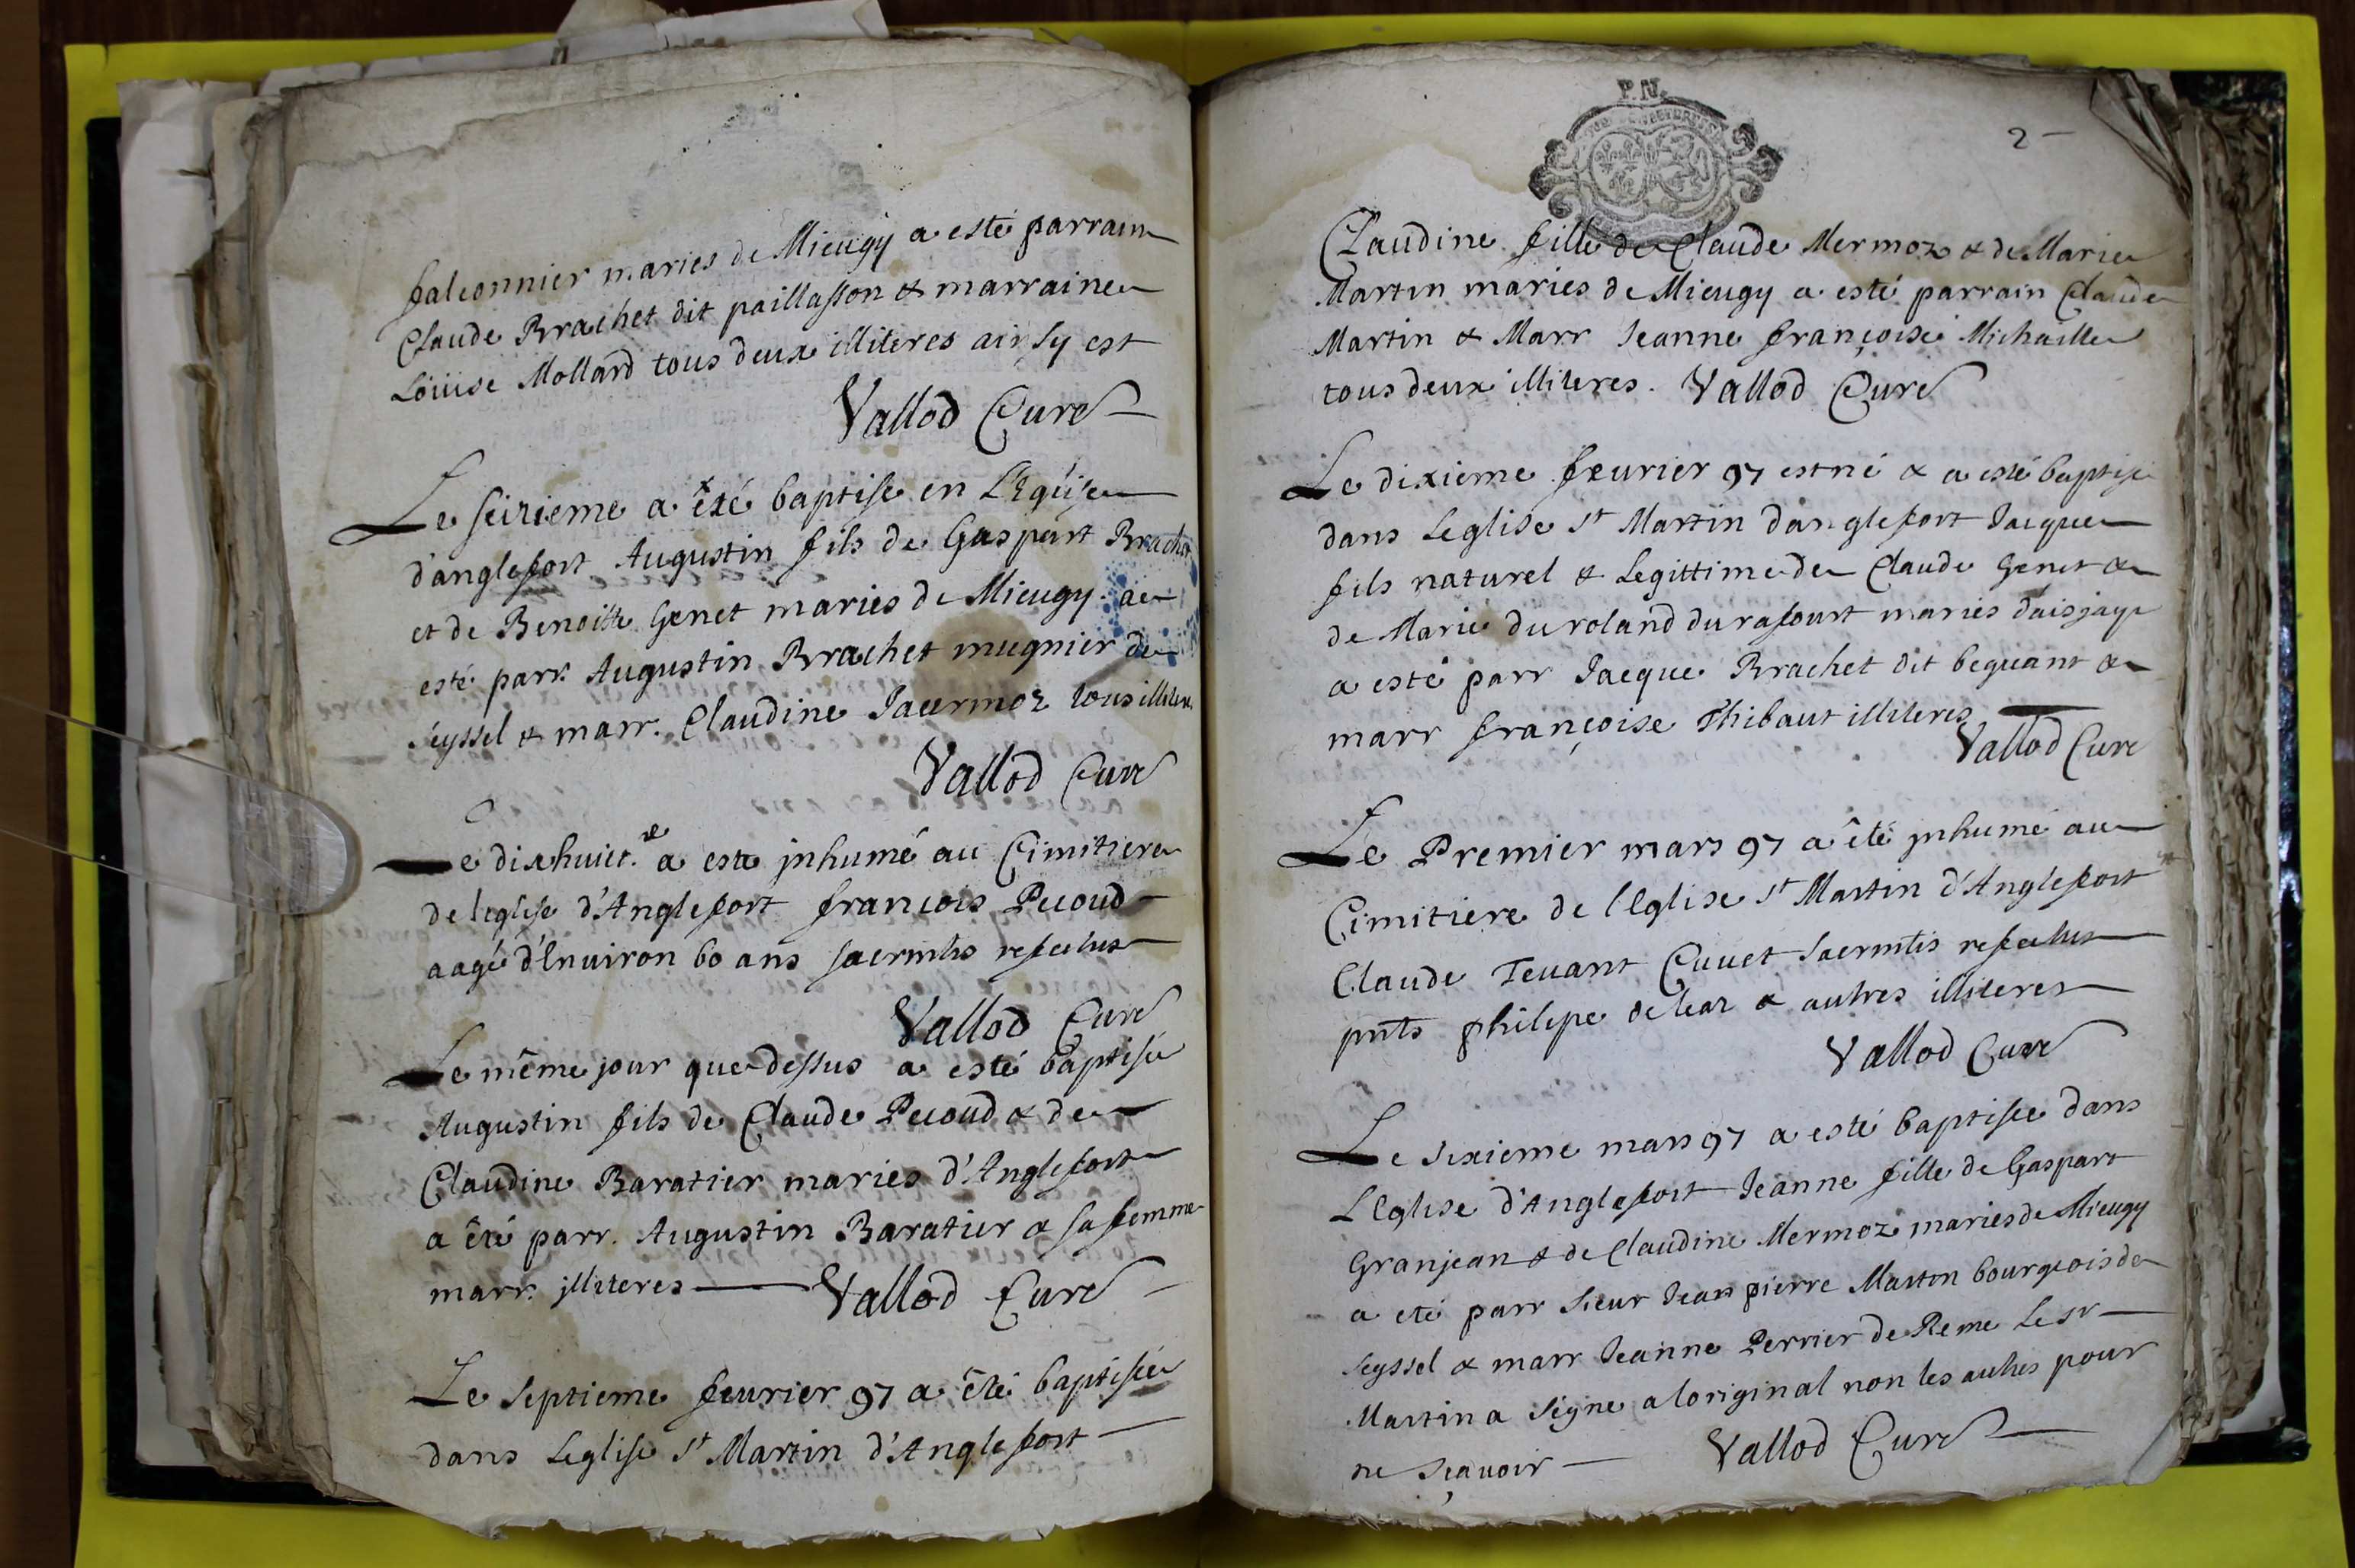 falconnier maries de Mieugy a esté parrain
Claude Brachet dit paillasson & marraine
Loüise Mollard tous deux illiteres ainsy est
Vallod Curé
Le seizieme a été baptise en L'Eglise
d'anglefort Augustin fils de Gaspart Brachet
et de Benoitte Genet maries de Mieugy a
esté parr. Augustin Brachet mugnier de
seyssel & marr. Claudine Jacermoz tous illiteres
Vallod Curé
Le dixhuict.e a este inhumé au Cimitiere
de leglise d'Anglefort francois Pecoud
aagé d'Environ 60 ans sacrmtis refectus
Vallod Curé
Le même jour que dessus a esté baptisé
Augustin fils de Claude Pecoud & de
Claudine Baratier maries d'Anglefort
a été parr. Augustin Baratier & sa femme
marr. illiteres Vallod Curé
Le Septieme feurier 97 a êté baptisée
dans Leglise St Martin d'Anglefort
P.N.
2
Claudine fille de Claude Mermoz & de Marie
Martin maries de Mieugy a esté parrain Claude
Martin & Marr Jeanne françoise Michaille
tous deux illiteres. Vallod Curé
Le dixieme feurier 97 est né & a esté baptise
dans Leglise St Martin d'anglefort Jacque
fils naturel & Legittime de Claude Genet &
de Marie du roland durafourt maries
a esté parr Jacque Brachet dit beguant &
marr françoise Thibaut illiteres
Vallod Curé
Le Premier mars 97 a êté inhumé au
Cimitiere de l'Eglise St Martin d'Anglefort
Claude Teuant Cuuet Sacrmtis refectus
pnts philipe deleaz & autres illiteres
Vallod Curé
Le sixieme mars 97 a esté baptisée dans
L'Eglise d'Anglefort Jeanne fille de Gaspart
Granjean & de Claudine Mermoz maries de Mieugy
a eté parr Sieur Jean pierre Martin bourgeois de
Seyssel & marr Jeanne Perrier de Reme Le sr
Martin a signe a loriginal non les autres pour
ne sçauoir Vallod Curé